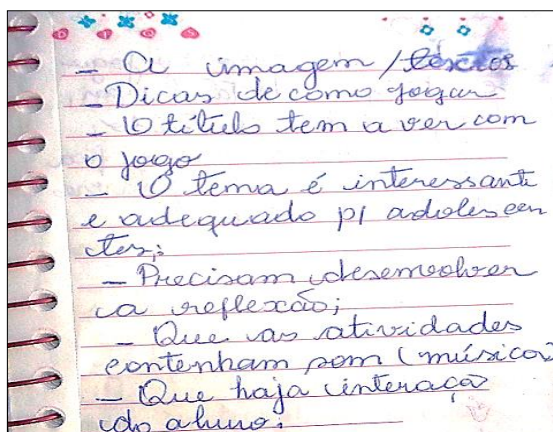 - A imagem / textos
- Dicas de como jogar
- O título tem a ver com
o jogo
- O tema é interessante
e adequado p/ adolescen
tes;
- Precisam desenvolver
a reflexão;
- Que as atividades
contenham som (músicas)
- Que haja interação
do aluno.